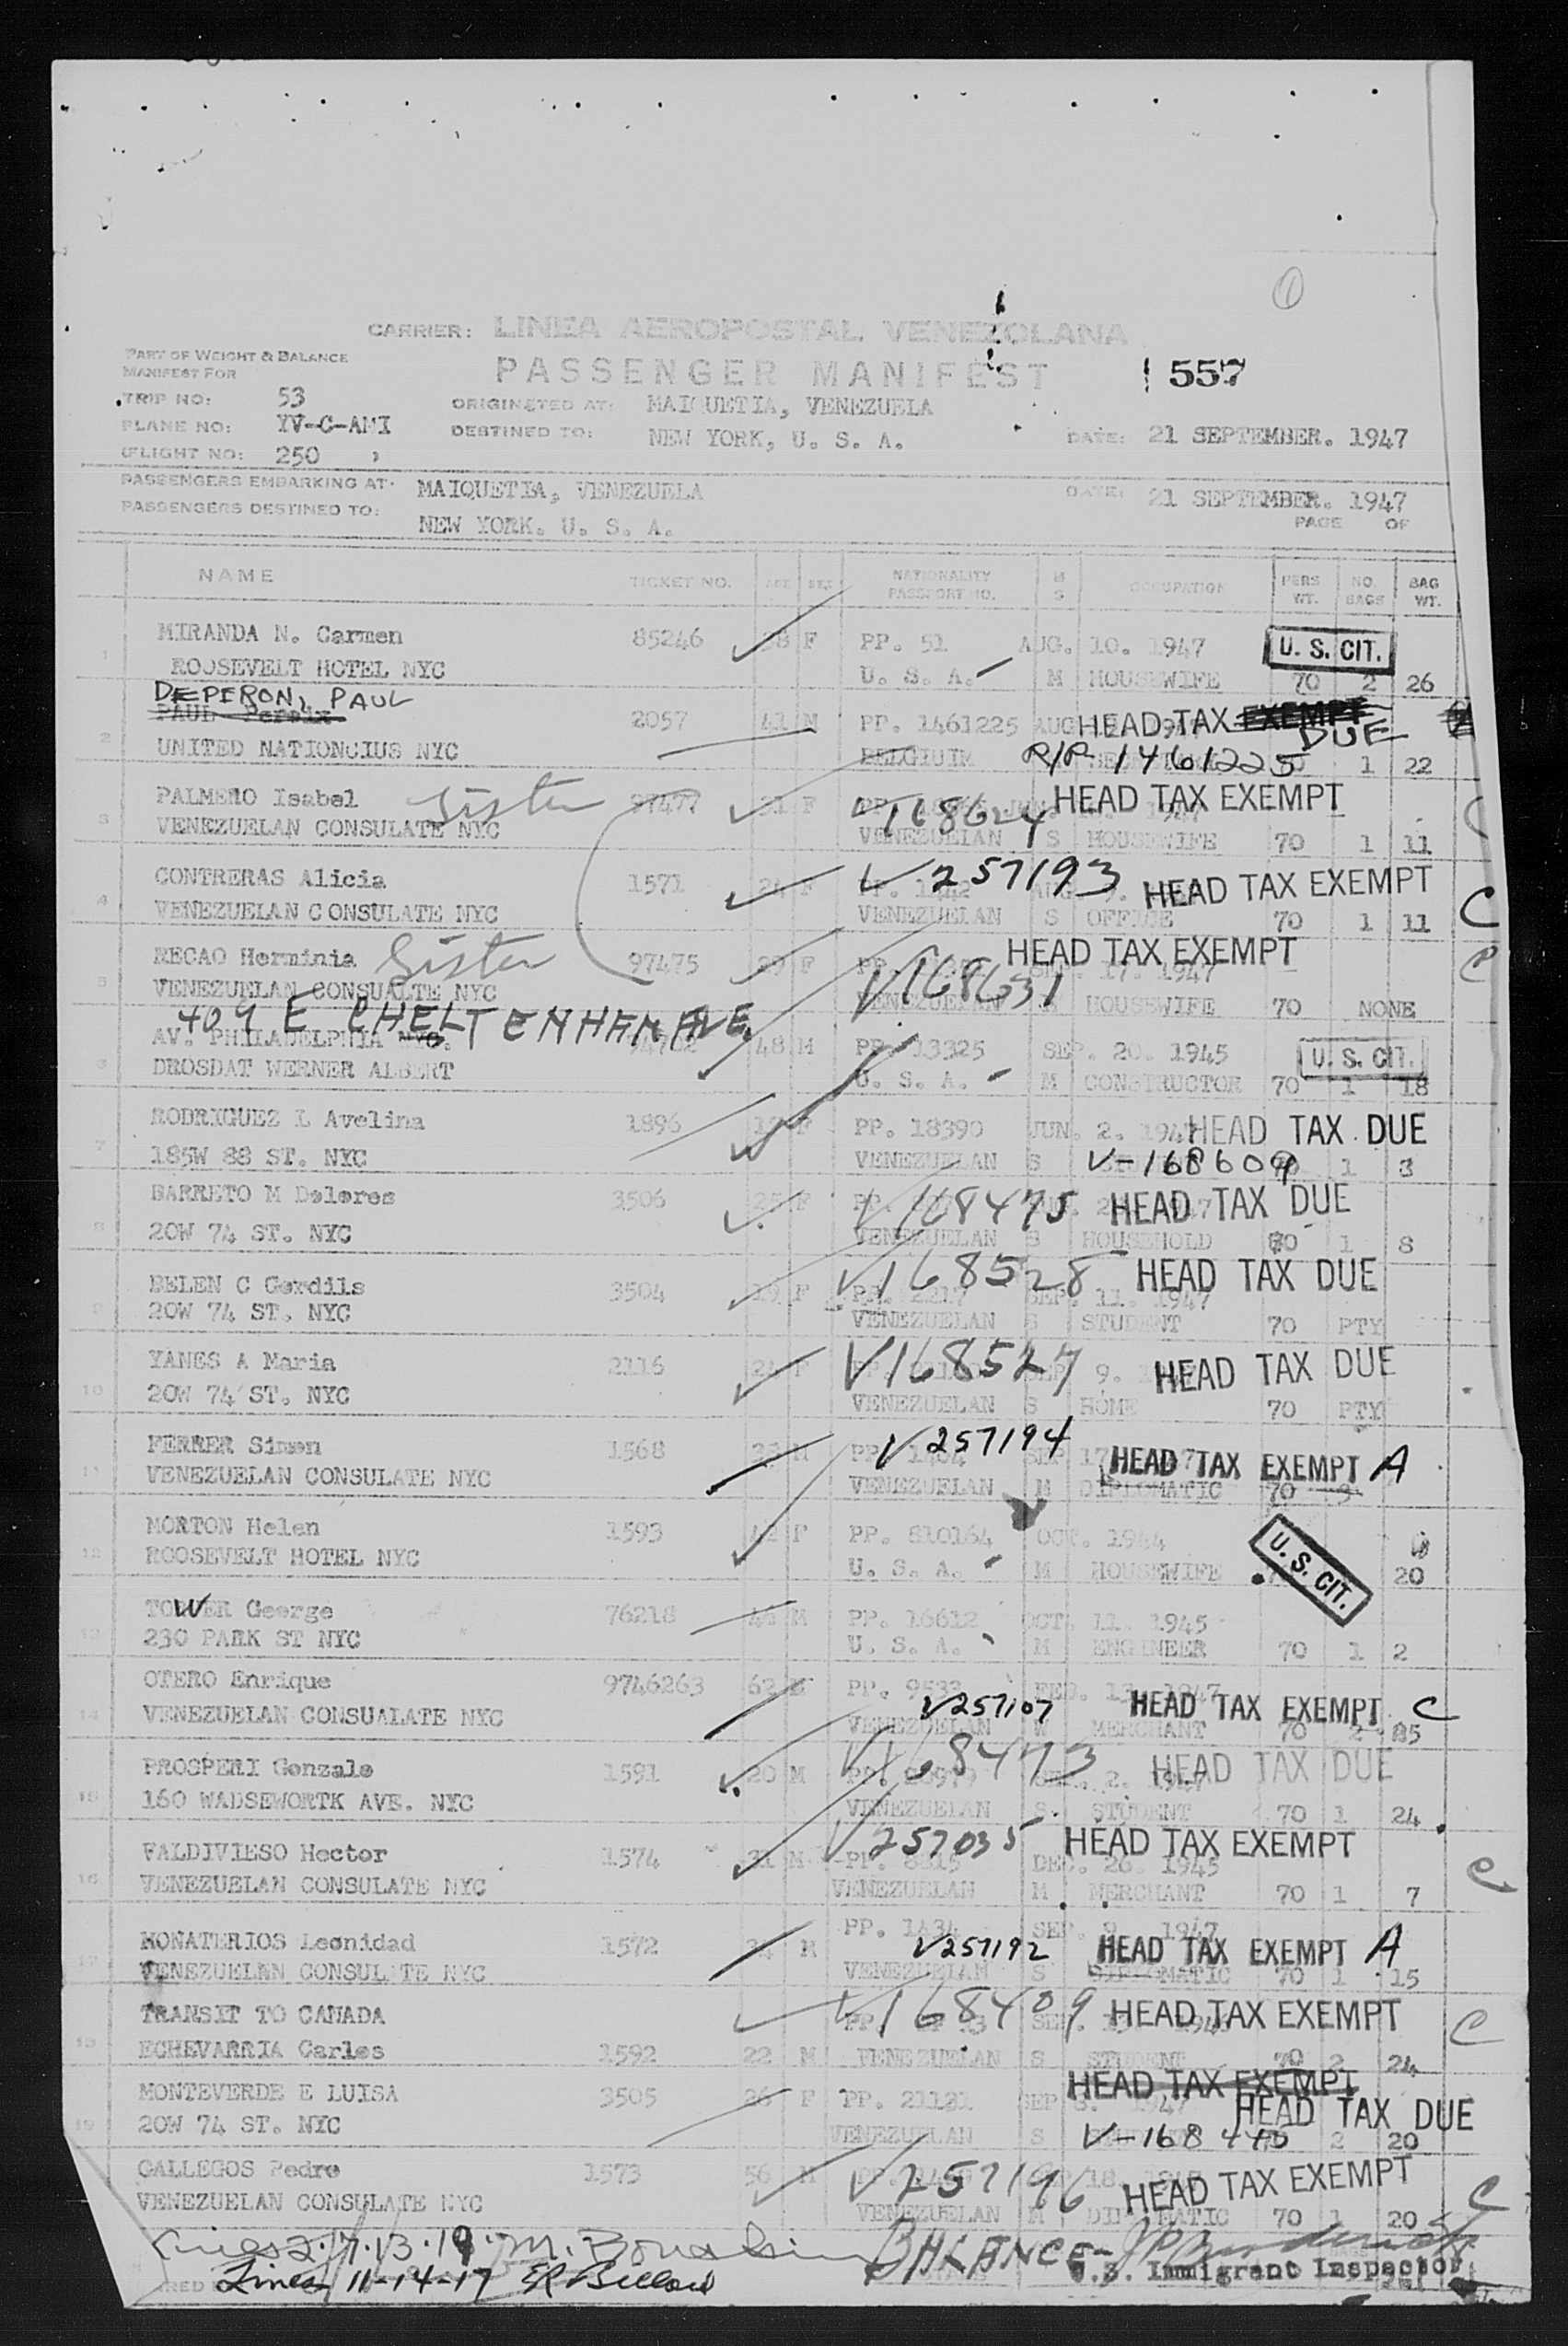 CARRIER: LINEA AEROPOSTAL VENEZOLANA
PART OF WEIGHT & BALANCE
MANIFEST FOR
PASSENGER MANIFEST 557
TRIP NO: 53
ORIGINATED AT: MAIQUETIA, VENEZUELA
PLANE NO: YV-C-AMI
DESTINED TO: NEW YORK, U. S. A. DATE: 21 SEPTEMBER. 1947
FLIGHT NO: 250
PASSENGERS EMBARKING AT: MAIQUETIA, VENEZUELA DATE: 21 SEPTEMBER. 1947
PASSENGERS DESTINED TO: NEW YORK. U. S. A. PAGE OF
NAME TICKET NO. AGE SEX NATIONALITY PASSPORT NO. M S OCCUPATION PERS WT. NO. BAGS BAG WT.
1 MIRANDA N. Carmen 85246 38 F PP. 51 AUG. 10. 1947 U. S. CIT.
ROOSEVELT HOTEL NYC U. S. A. M HOUSEWIFE 70 2 26
DEPERON, PAUL
PAUL 2057 41 M PP. 1461225 AUG HEAD TAX EXEMPT DUE
2 UNITED NATIONCIUS NYC BELGIUM P/P 1461225 1 22
PALMERO Isabel Sister 97477 31 F V168624 HEAD TAX EXEMPT
3 VENEZUELAN CONSULATE NYC VENEZUELAN S HOUSEWIFE 70 1 11
CONTRERAS Alicia 1571 24 F V257193 HEAD TAX EXEMPT
4 VENEZUELAN CONSULATE NYC VENEZUELAN S OFFICE 70 1 11 C
RECAO Herminia Sister 97475 29 F HEAD TAX EXEMPT C
17. 1947
5 VENEZUELAN CONSUALTE NYC V168631 VENEZUELAN HOUSEWIFE 70 NONE
409 E CHELTENHAM AVE
AV. PHILADELPHIA NYC. 48 M PP. 13325 SEP. 20. 1945 U. S. CIT.
6 DROSDAT WERNER ALBERT U. S. A. M CONSTRUCTOR 70 1 18
RODRIGUEZ L Avelina 1896 F PP. 18390 JUN. 2. 1947 HEAD TAX DUE
7 185W 88 ST. NYC VENEZUELAN S V-168609 1 3
BARRETO M Dolores 3506 25 F V168475 HEAD TAX DUE
8 20W 74 ST. NYC VENEZUELAN S HOUSEHOLD 70 1 8
V168528 HEAD TAX DUE
BELEN C Gordils 3504 19 F PP. 2217 SEP. 11. 1947
9 20W 74 ST. NYC VENEZUELAN S STUDENT 70 PTY
YANES A Maria 2116 24 F V168527 9. HEAD TAX DUE
10 20W 74 ST. NYC VENEZUELAN S HOME 70 PTY
FERRER Simon 1568 M V257194 SEP 17 HEAD TAX EXEMPT A
11 VENEZUELAN CONSULATE NYC VENEZUELAN M DIPLOMATIC 70 3
MORTON Helen 1593 42 F PP. 810164 OCT. 1944 U. S. CIT.
12 ROOSEVELT HOTEL NYC U. S. A. M HOUSEWIFE 20
TOWER George 76218 M PP. 16612 OCT. 11. 1945
13 230 PARK ST NYC U. S. A. M ENGINEER 70 1 2
OTERO Enrique 9746263 62 M PP. 9533 FEB. 13. 1947
V257107 HEAD TAX EXEMPT C
14 VENEZUELAN CONSUALATE NYC VENEZUELAN W MERCHANT 70 2 85
PROSPERI Gonzalo 1591 20 M V168473 2. 1947 HEAD TAX DUE
15 160 WADSEWORTK AVE. NYC VENEZUELAN S STUDENT 70 1 24
VALDIVIESO Hector 1574 31 M V257035 HEAD TAX EXEMPT
DEC. 26. 1945
16 VENEZUELAN CONSULATE NYC VENEZUELAN M MERCHANT 70 1 7 C
PP. 1434 SEP. 9. 1947
MONATERIOS Leonidad 1572 34 M V257192 HEAD TAX EXEMPT A
17 VENEZUELAN CONSULATE NYC VENEZUELAN S DIPLOMATIC 70 1 15
TRANSIT TO CANADA V168409 HEAD TAX EXEMPT C
18 ECHEVARRIA Carlos 1592 22 M VENEZUELAN S STUDENT 70 2 24
HEAD TAX EXEMPT
MONTEVERDE E LUISA 3505 26 F PP. 21121 SEP 1947 HEAD TAX DUE
19 20W 74 ST. NYC VENEZUELAN S V-168440 2 20
GALLEGOS Pedro 1573 56 M V257196 18. HEAD TAX EXEMPT
VENEZUELAN CONSULATE NYC VENEZUELAN M DIPLOMATIC 70 1 20 C
Lines 2.7.13.19. BALANCE-
Lines 11-14-17 U.S. Immigrant Inspector